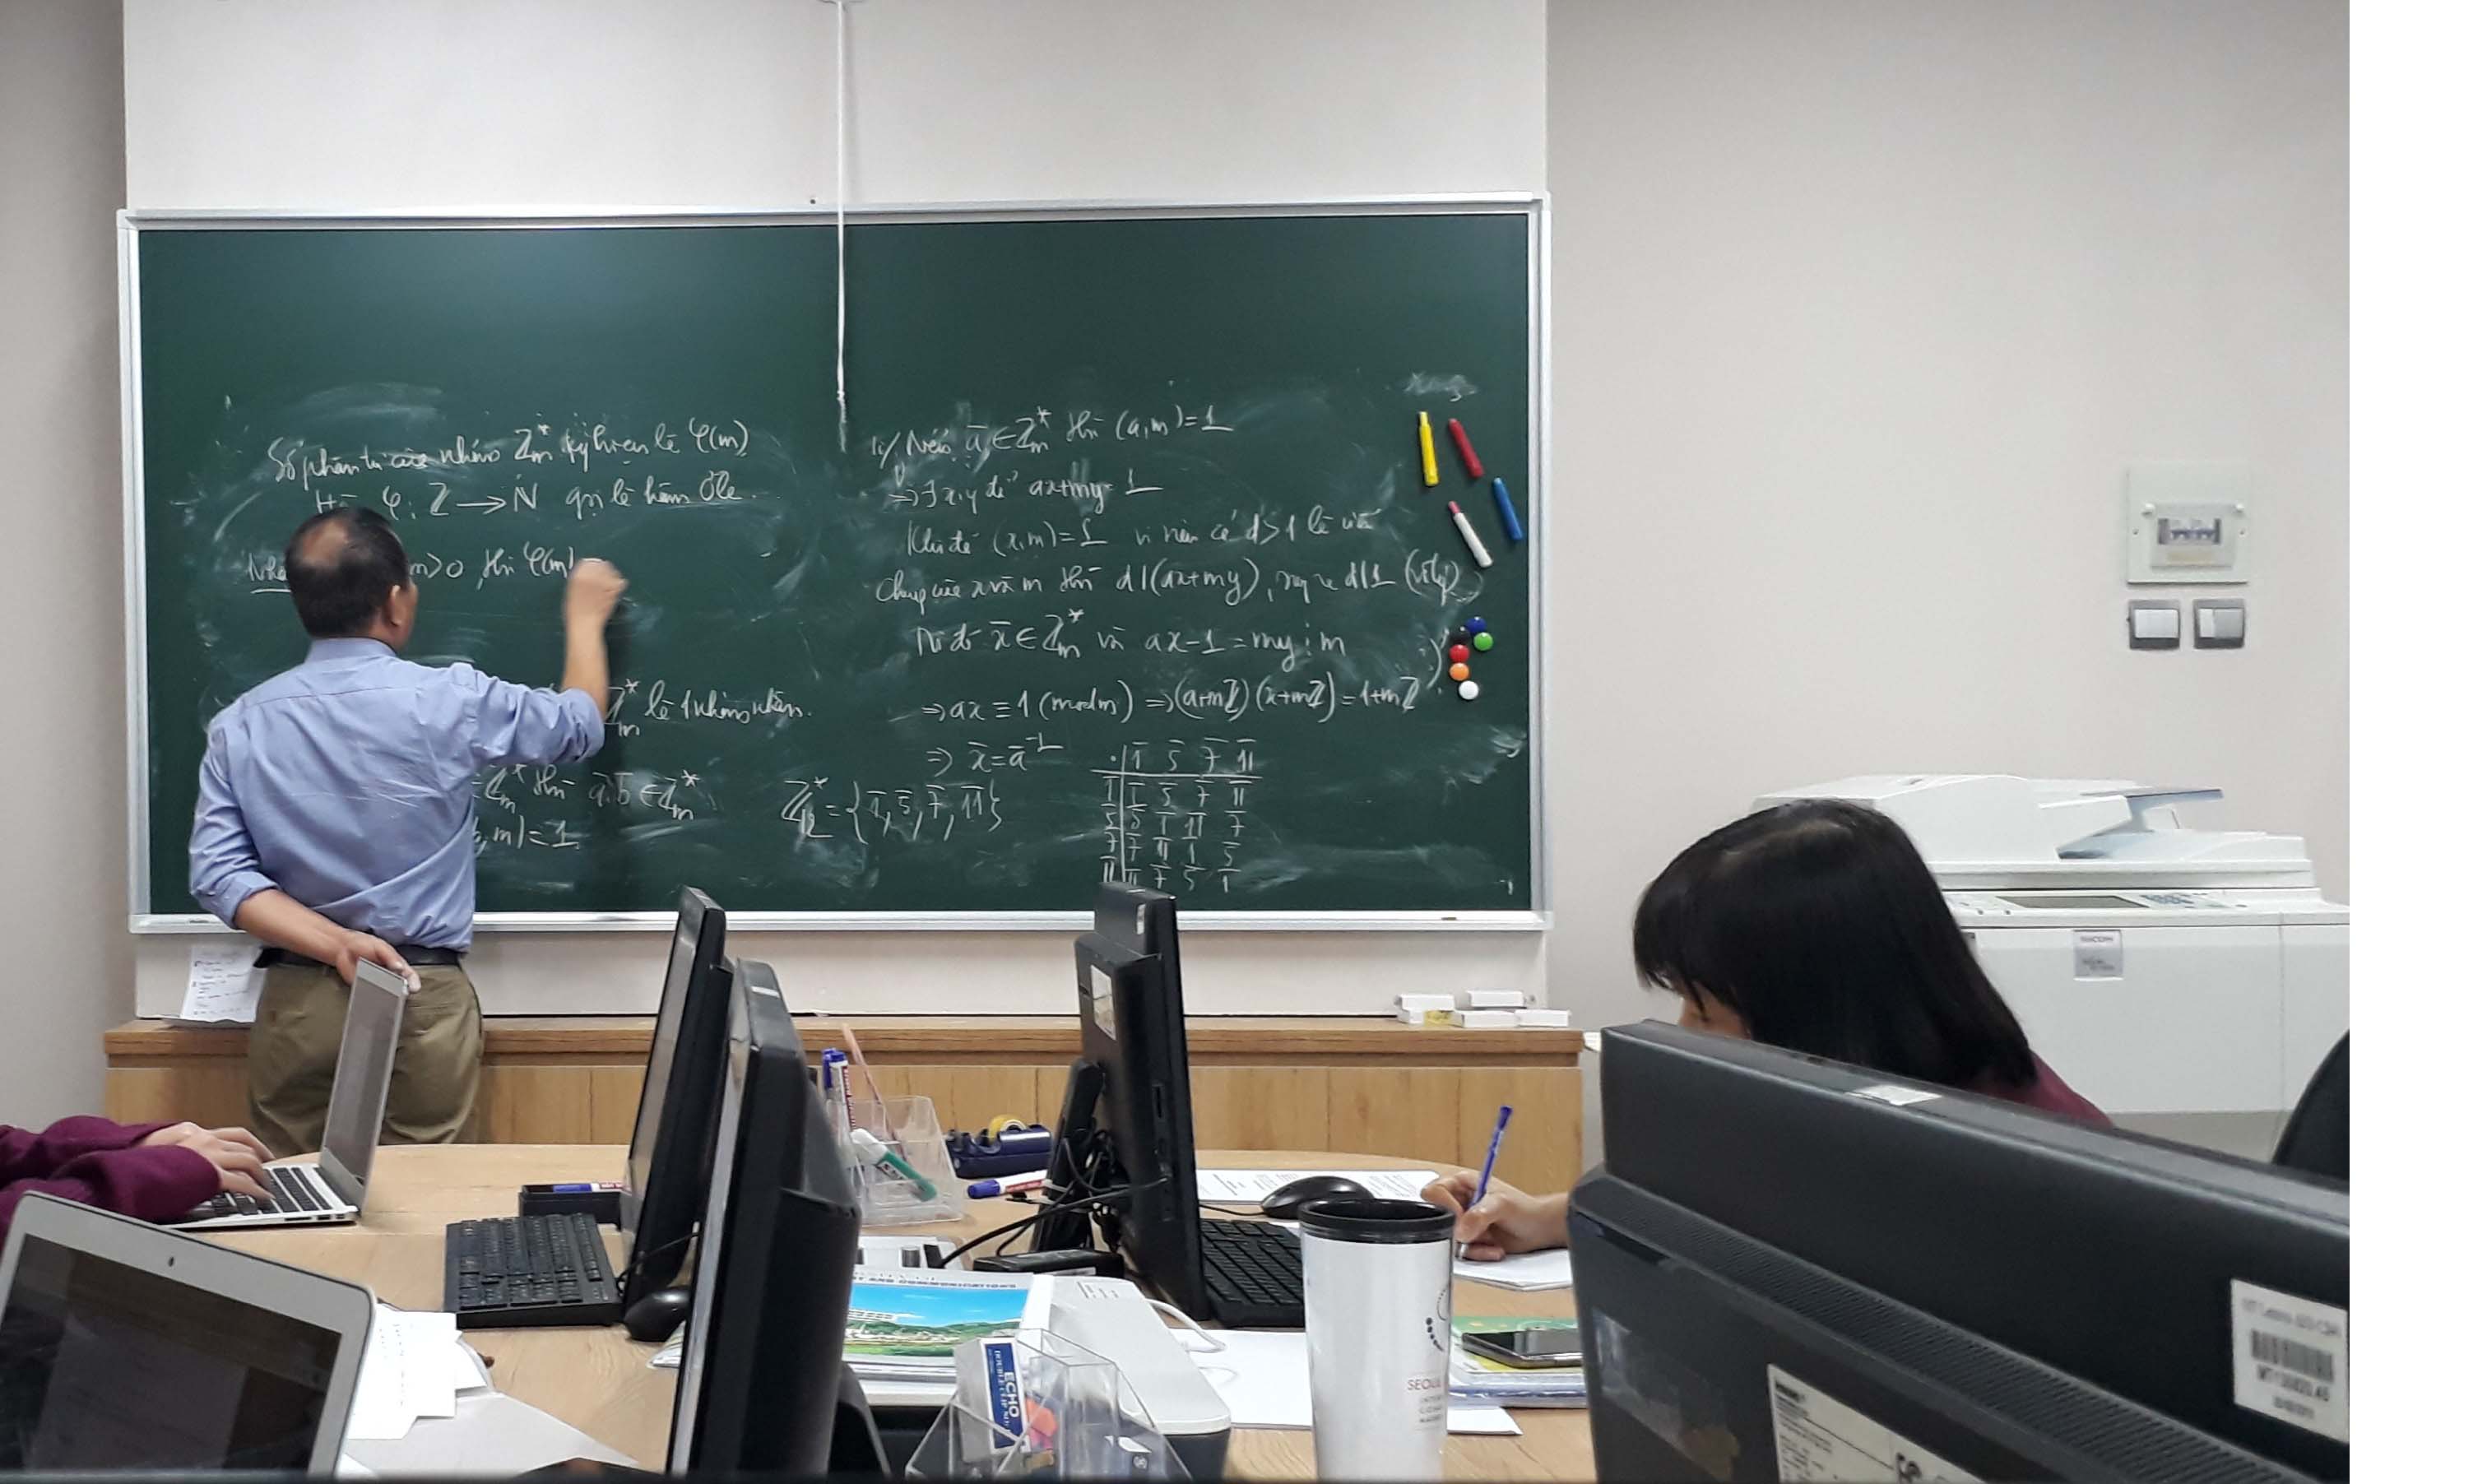 Số phần tử của nhóm ℤ*ₘ ký hiệu là φ(m)
φ: ℤ → ℕ gọi là hàm Ơle.
m>0, thì φ(m)
ℤ*ₘ là 1 nhóm nhân.
ℤ*ₘ thì a̅.b̅ ∈ ℤ*ₘ
,m)=1.
ii/ Nếu a̅ ∈ ℤ*ₘ thì (a,m)=1
⇒ ∃ x,y để ax+my=1
Khi đó (x,m)=1 vì nếu có d>1 là ước
chung của x và m thì d|(ax+my), suy ra d|1 (vô lý)
Do đó x̅ ∈ ℤ*ₘ và ax-1=my⋮m
⇒ ax ≡ 1 (mod m) ⇒ (a+mℤ)(x+mℤ)=1+mℤ
⇒ x̅ = a̅⁻¹
ℤ*₁₂ = {1̅, 5̅, 7̅, 1̅1̅}
. 1̅ 5̅ 7̅ 1̅1̅
1̅ 1̅ 5̅ 7̅ 1̅1̅
5̅ 5̅ 1̅ 1̅1̅ 7̅
7̅ 7̅ 1̅1̅ 1̅ 5̅
1̅1̅ 1̅1̅ 7̅ 5̅ 1̅
RICOH
AND COMMUNICATIONS
ECHO
SEOUL